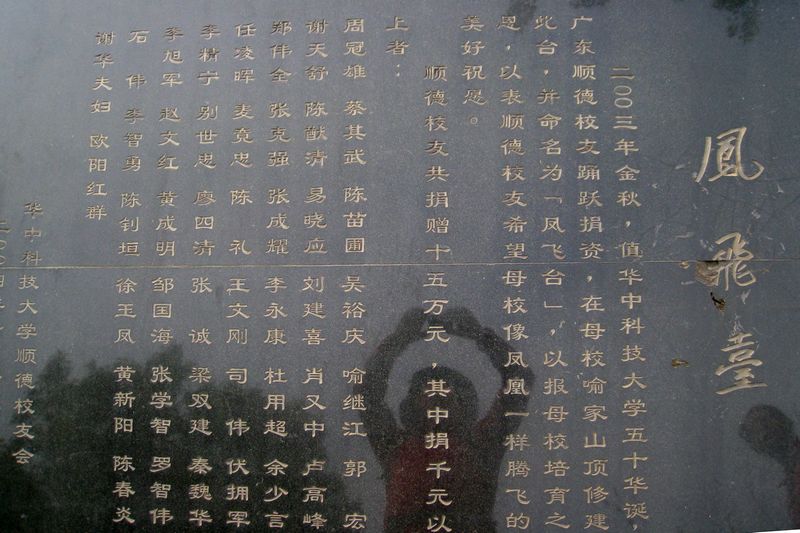 鳳飛臺
二〇〇三年金秋，值华中科技大学五十华诞，
广东顺德校友踊跃捐资，在母校喻家山顶修建
此台，并命名为「凤飞台」，以报母校培育之
恩，以表顺德校友希望母校像凤凰一样腾飞的
美好祝愿。
顺德校友共捐赠十五万元，其中捐千元以
上者：
周冠雄 蔡其武 陈苗圃 吴裕庆 喻继江 郭宏
谢天舒 陈猷清 易晓应 刘建喜 肖又中 卢高峰
郑伟全 张克强 张成耀 李永康 杜用超 余少言
任凌晖 麦竟忠 陈礼 王文刚 司伟 伏拥军
李精宁 别世忠 廖四清 张诚 梁双建 秦魏华
李旭军 赵文红 黄成明 邹国海 张学智 罗智伟
石伟 李智勇 陈钊垣 徐玉凤 黄新阳 陈春炎
谢华夫妇 欧阳红群
华中科技大学顺德校友会
二〇〇四年